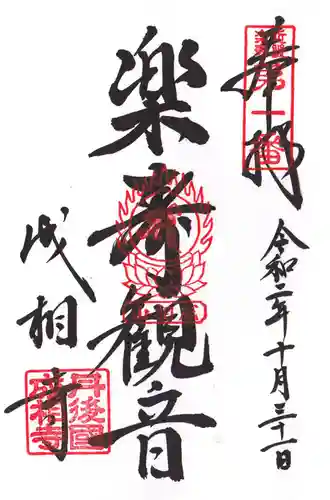 奉拝
第一番
令和二年十月三十一日
楽寿觀音
成相寺
丹後國
成相寺